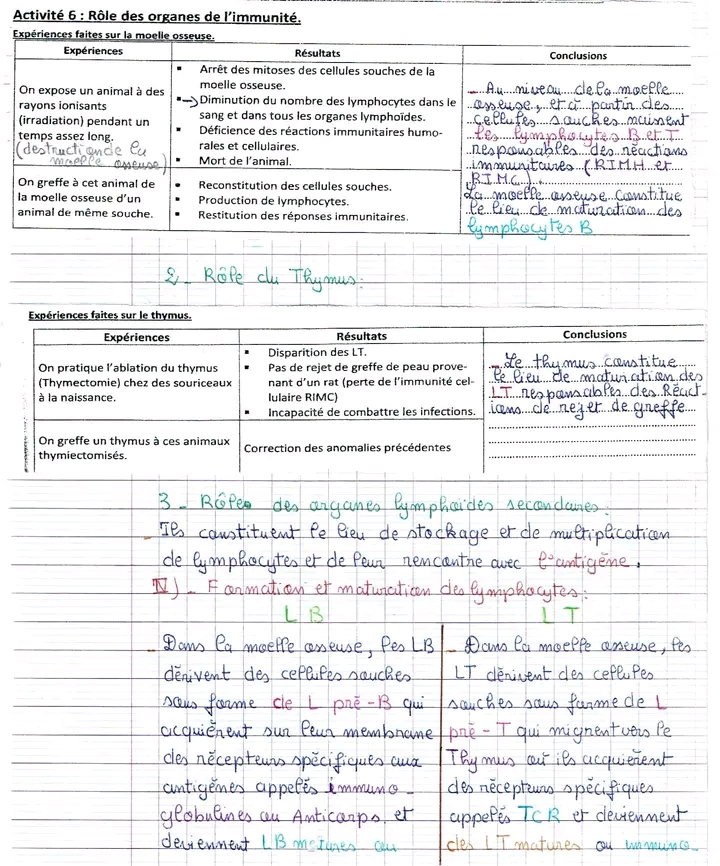 Activité 6 : Rôle des organes de l'immunité.
Expériences faites sur la moelle osseuse.
Expériences
Résultats
Conclusions
On expose un animal à des
rayons ionisants
(irradiation) pendant un
temps assez long.
(destruction de la
moelle osseuse)
▪ Arrêt des mitoses des cellules souches de la
moelle osseuse.
▪→ Diminution du nombre des lymphocytes dans le
sang et dans tous les organes lymphoïdes.
▪ Déficience des réactions immunitaires humo-
rales et cellulaires.
▪ Mort de l'animal.
_ Au niveau de la moelle
osseuse, et à partir des
cellules souches naissent
les lymphocytes B et T
responsables des réactions
immunitaires (RIMH et
RIMC).
La moelle osseuse constitue
le lieu de maturation des
lymphocytes B
On greffe à cet animal de
la moelle osseuse d'un
animal de même souche.
▪ Reconstitution des cellules souches.
▪ Production de lymphocytes.
▪ Restitution des réponses immunitaires.
2 _ Rôle du Thymus :
Expériences faites sur le thymus.
Expériences
Résultats
Conclusions
On pratique l'ablation du thymus
(Thymectomie) chez des souriceaux
à la naissance.
▪ Disparition des LT.
▪ Pas de rejet de greffe de peau prove-
nant d'un rat (perte de l'immunité cel-
lulaire RIMC)
▪ Incapacité de combattre les infections.
_ Le thymus constitue
le lieu de maturation des
LT responsables des Réact-
ions de rejet de greffe
On greffe un thymus à ces animaux
thymiectomisés.
Correction des anomalies précédentes
3 _ Rôles des organes lymphoïdes secondaires :
_ Ils constituent le lieu de stockage et de multiplication
de lymphocytes et de leur rencontre avec l'antigène.
IV) _ Formation et maturation des lymphocytes :
LB
_ Dans la moelle osseuse, les LB
dérivent des cellules souches
sous forme de L pré-B qui
acquièrent sur leur membrane
des récepteurs spécifiques aux
antigènes appelés immuno_
globulines ou Anticorps, et
deviennent LB matures ou
LT
_ Dans la moelle osseuse, les
LT dérivent des cellules
souches sous forme de L
pré-T qui migrent vers le
Thymus où ils acquièrent
des récepteurs spécifiques
appelés TCR et deviennent
des LT matures ou immuno_